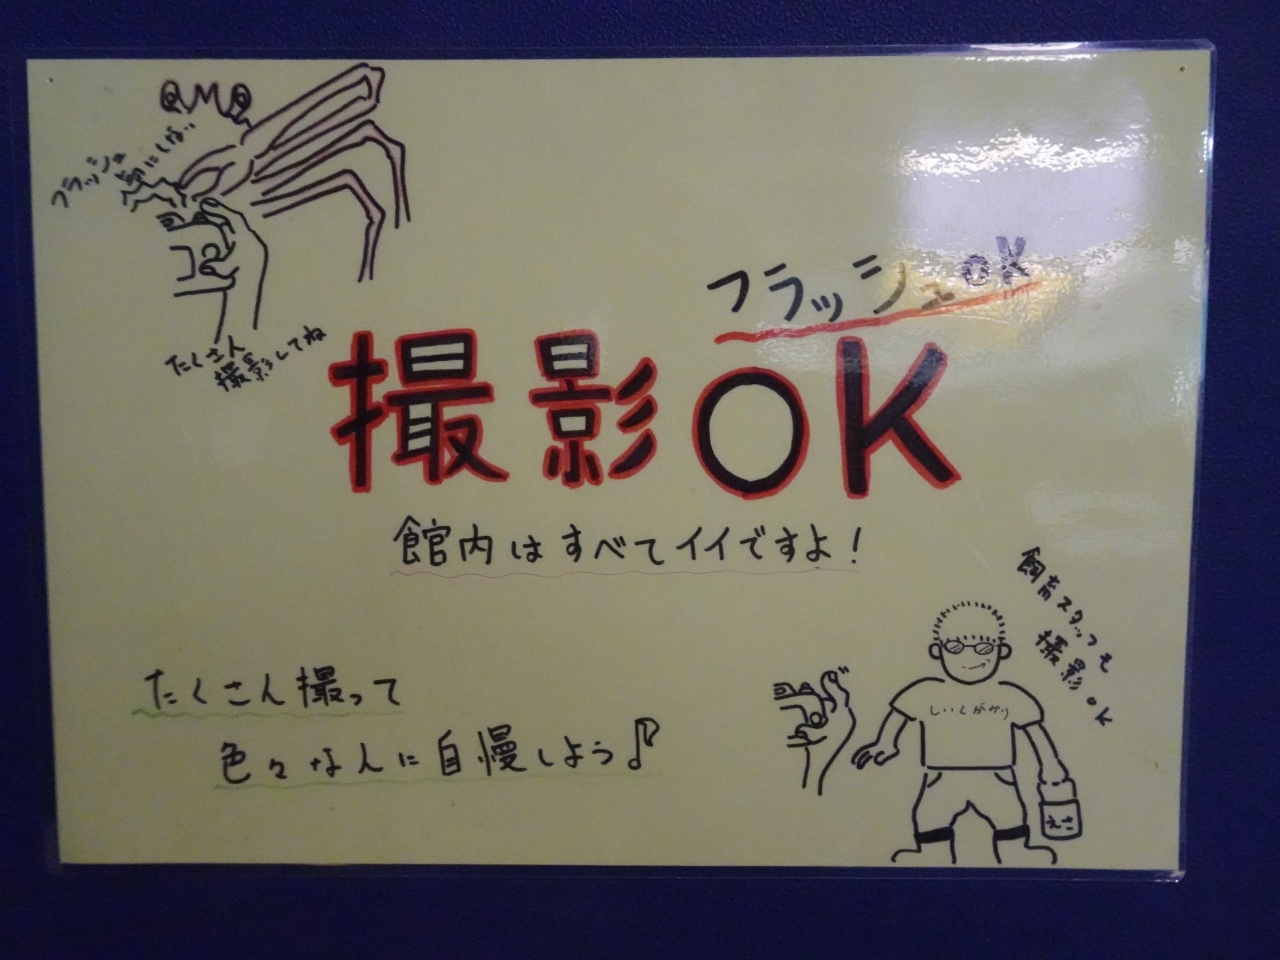 フラッシュ
気にしない
たくさん
撮影してね
フラッシュOK
撮影OK
館内はすべてイイですよ！
たくさん撮って
色々なんに自慢しよう♪
飼育スタッフも
撮影OK
しいくがかり
えさ